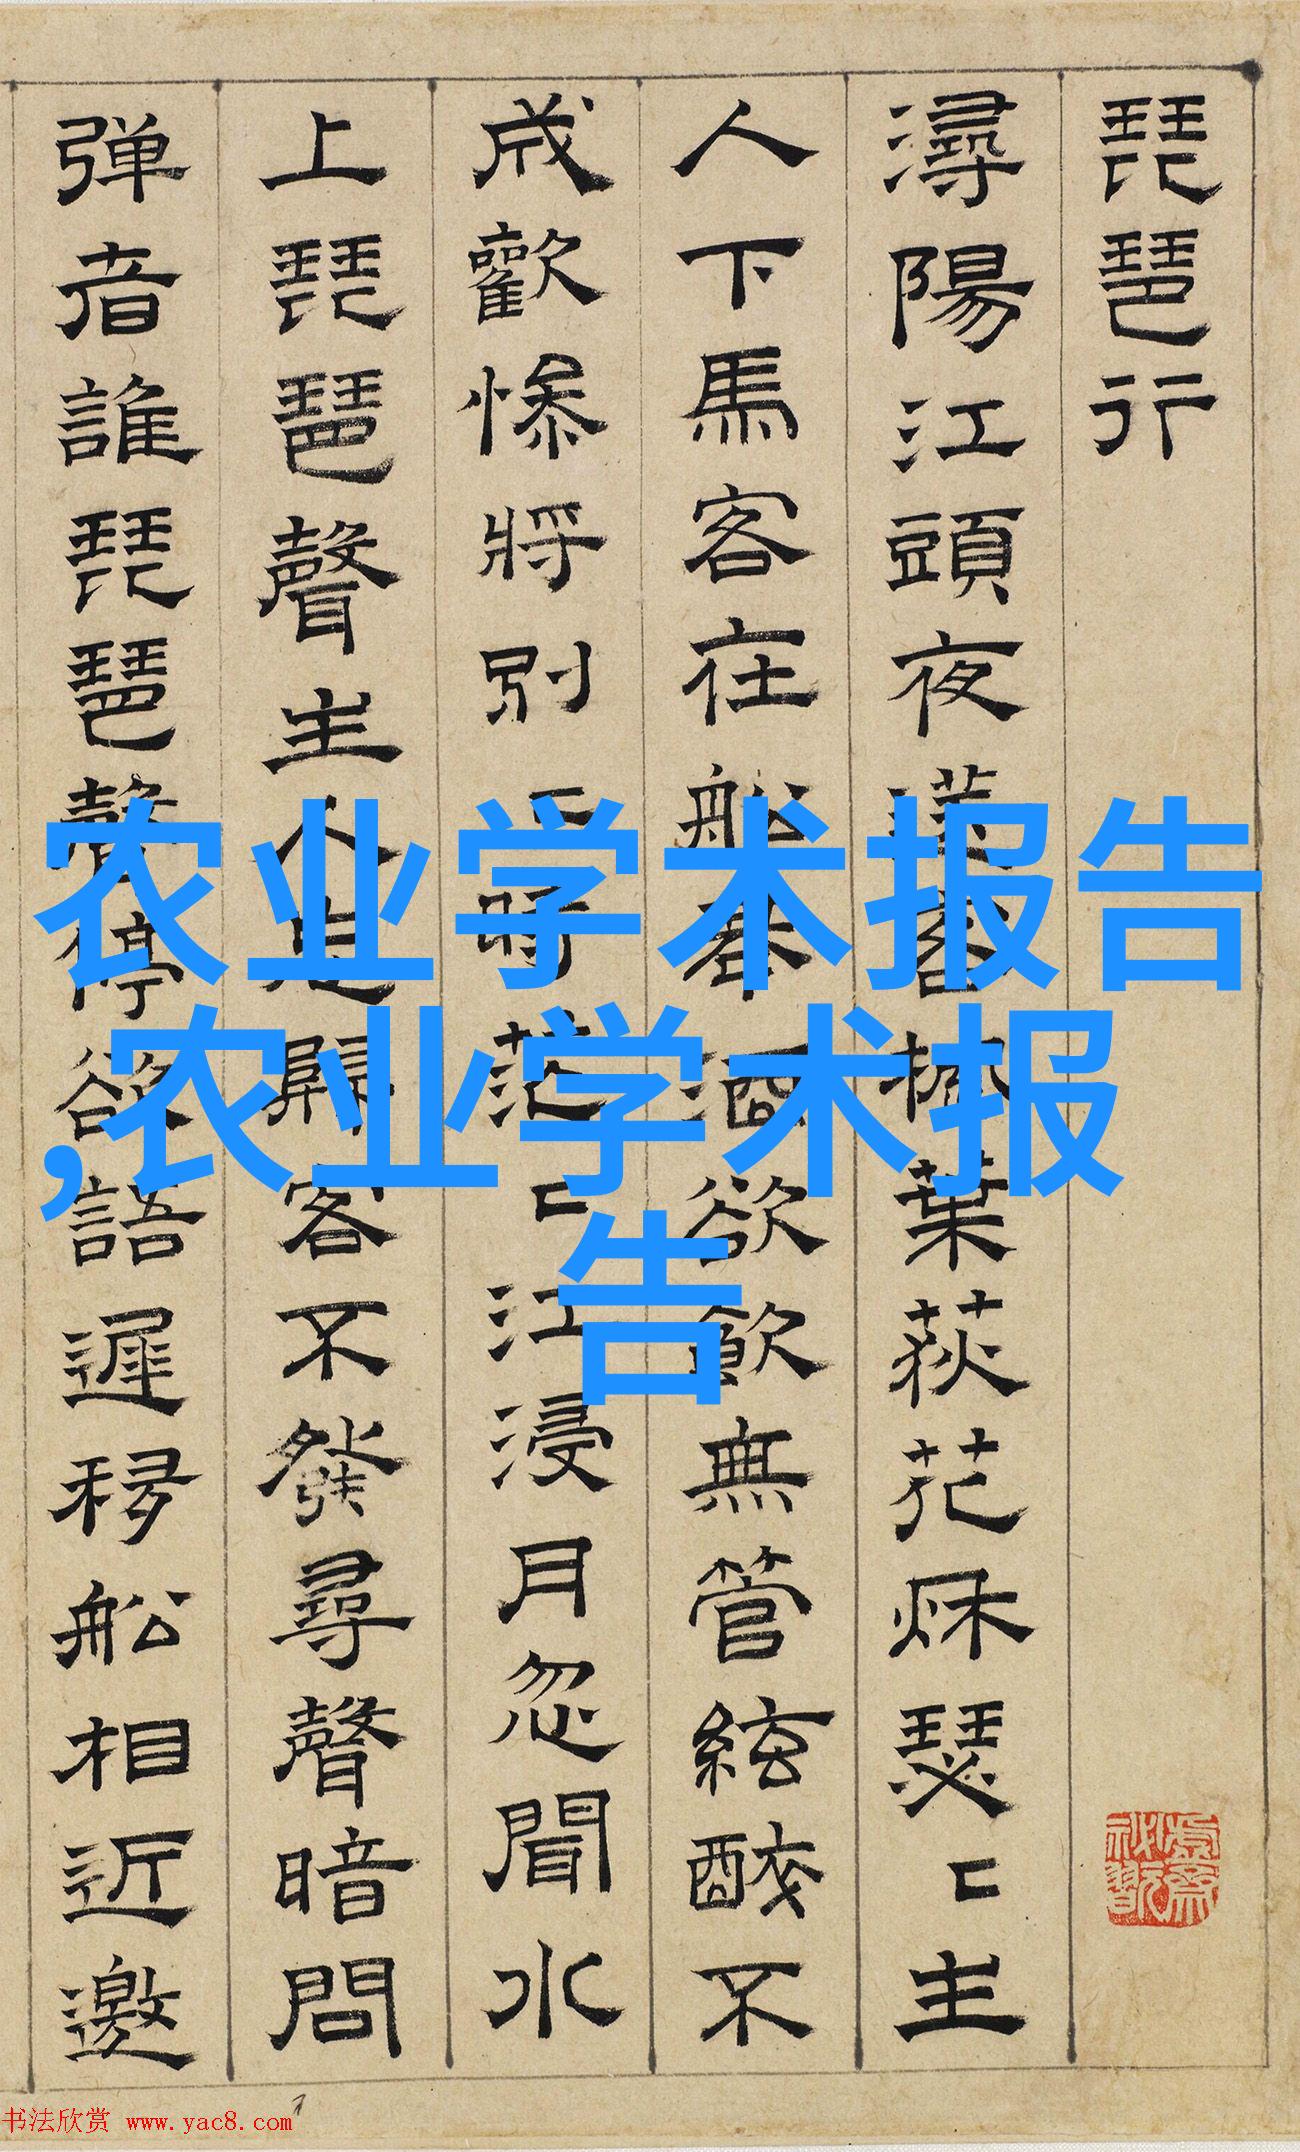 琵琶行
潯陽江頭夜送客楓葉荻花秌瑟〻主
人下馬客在船舉酒欲飲無管絃醉不
成歡慘將別〻時茫〻江浸月忽聞水
上琵琶聲主人忘歸客不發尋聲暗問
弹者誰琵琶聲停欲語遲移船相近邀
农业学术报告
,农业学术报
告
书法欣赏 www.yac8.com